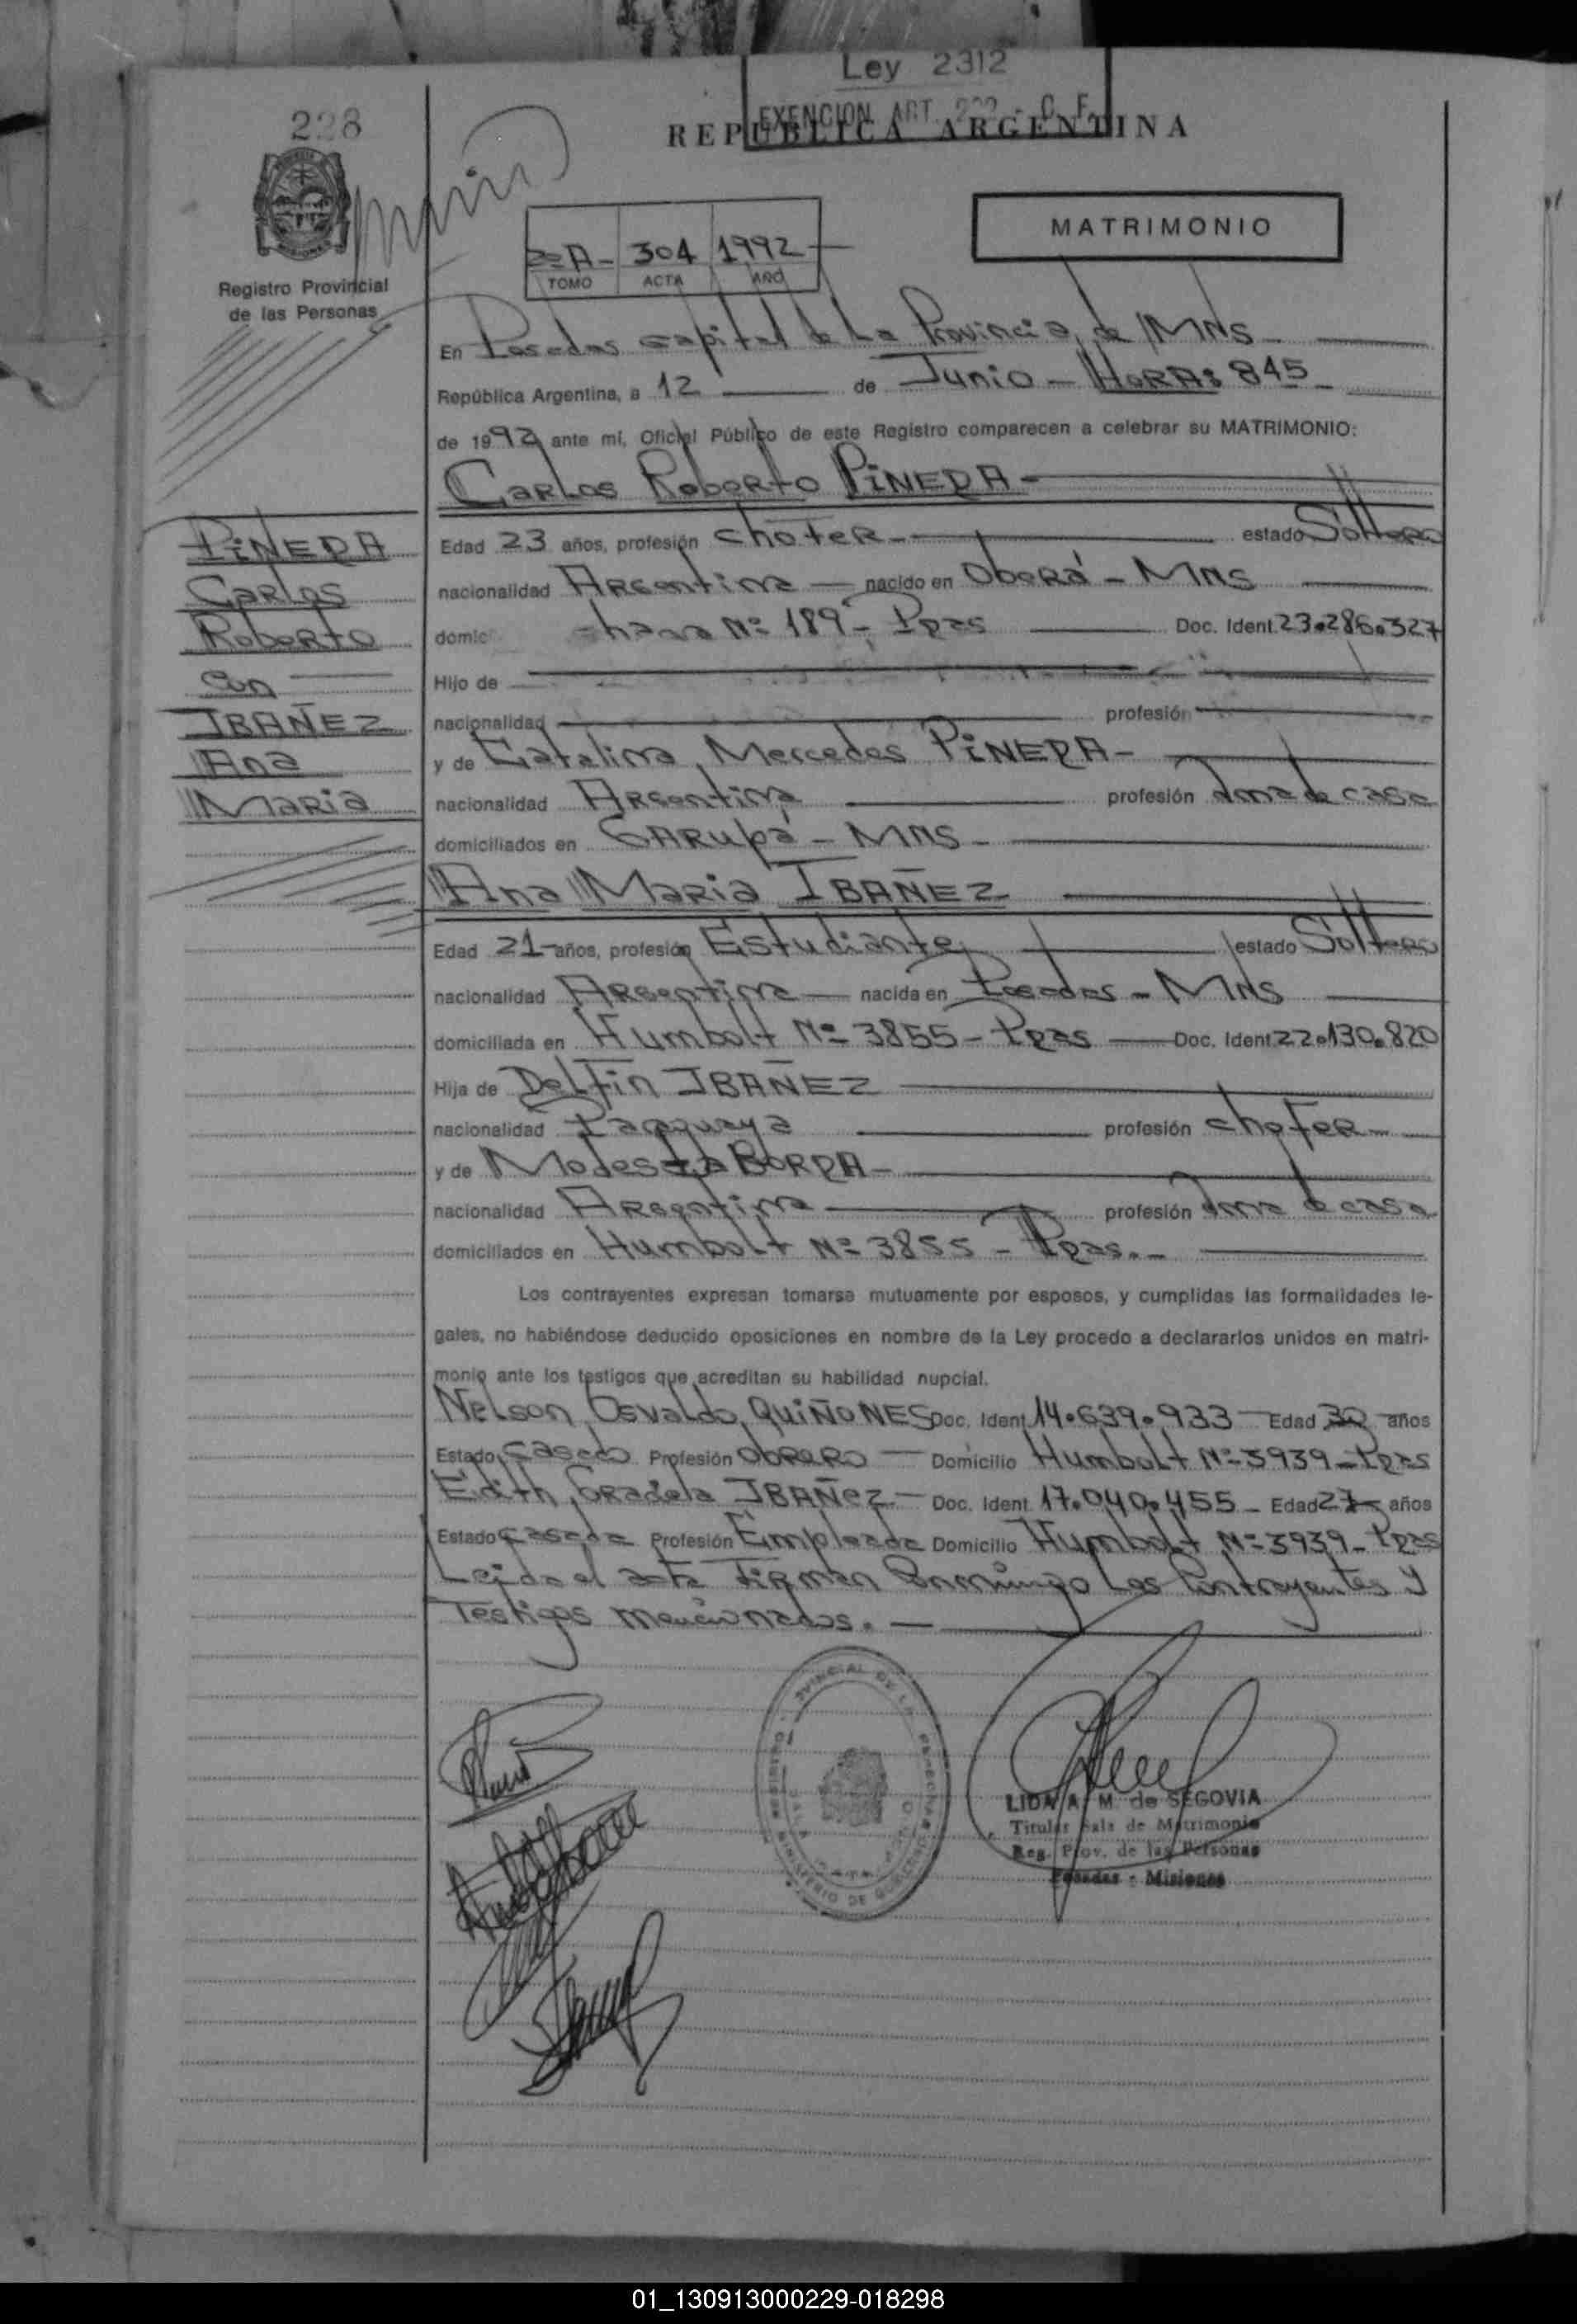 Ley 2312
EXENCION ART. 222 - C. F.
REPUBLICA ARGENTINA
228
MATRIMONIO
2º A- 304 1992
TOMO ACTA AÑO
Registro Provincial
de las Personas
En Posadas capital de La Provincia de MNS
República Argentina, a 12 de Junio - HORA: 845
de 1992 ante mí, Oficial Público de este Registro comparecen a celebrar su MATRIMONIO:
Carlos Roberto PINEDA
PINEDA
Carlos
Roberto
con
IBAÑEZ
Ana
Maria
Edad 23 años, profesión chofer estado Soltero
nacionalidad Argentina nacido en Oberá - MNS
domic chacra Nº 189 - Pdas Doc. Ident. 23.286.327
Hijo de
nacionalidad profesión
y de Catalina Mercedes PINEDA
nacionalidad Argentina profesión ama de casa
domiciliados en GARupá - MNS
Ana Maria IBAÑEZ
Edad 21 años, profesión Estudiante estado Soltera
nacionalidad Argentina nacida en Posadas - MNS
domiciliada en Humbolt Nº 3855 - Pdas Doc. Ident. 22.130.820
Hija de Delfin IBAÑEZ
nacionalidad Paraguaya profesión chofer
y de Modesta BORDA
nacionalidad Argentina profesión ama de casa
domiciliados en Humbolt Nº 3855 - Pdas.
Los contrayentes expresan tomarse mutuamente por esposos, y cumplidas las formalidades le-
gales, no habiéndose deducido oposiciones en nombre de la Ley procedo a declararlos unidos en matri-
monio ante los testigos que acreditan su habilidad nupcial.
Nelson Osvaldo QUIÑONES Doc. Ident. 14.639.933 Edad 30 años
Estado casado Profesión obrero Domicilio Humbolt Nº 3939 - Pdas
Edith Graciela IBAÑEZ Doc. Ident. 17.040.455 Edad 27 años
Estado casada Profesión Empleada Domicilio Humbolt Nº 3939 - Pdas
Leida el acta Firman Conmigo Los Contrayentes y
Testigos mencionados.
LIDA A. M. de SEGOVIA
Titular Sala de Matrimonio
Reg. Prov. de las Personas
Posadas - Misiones
01_130913000229-018298